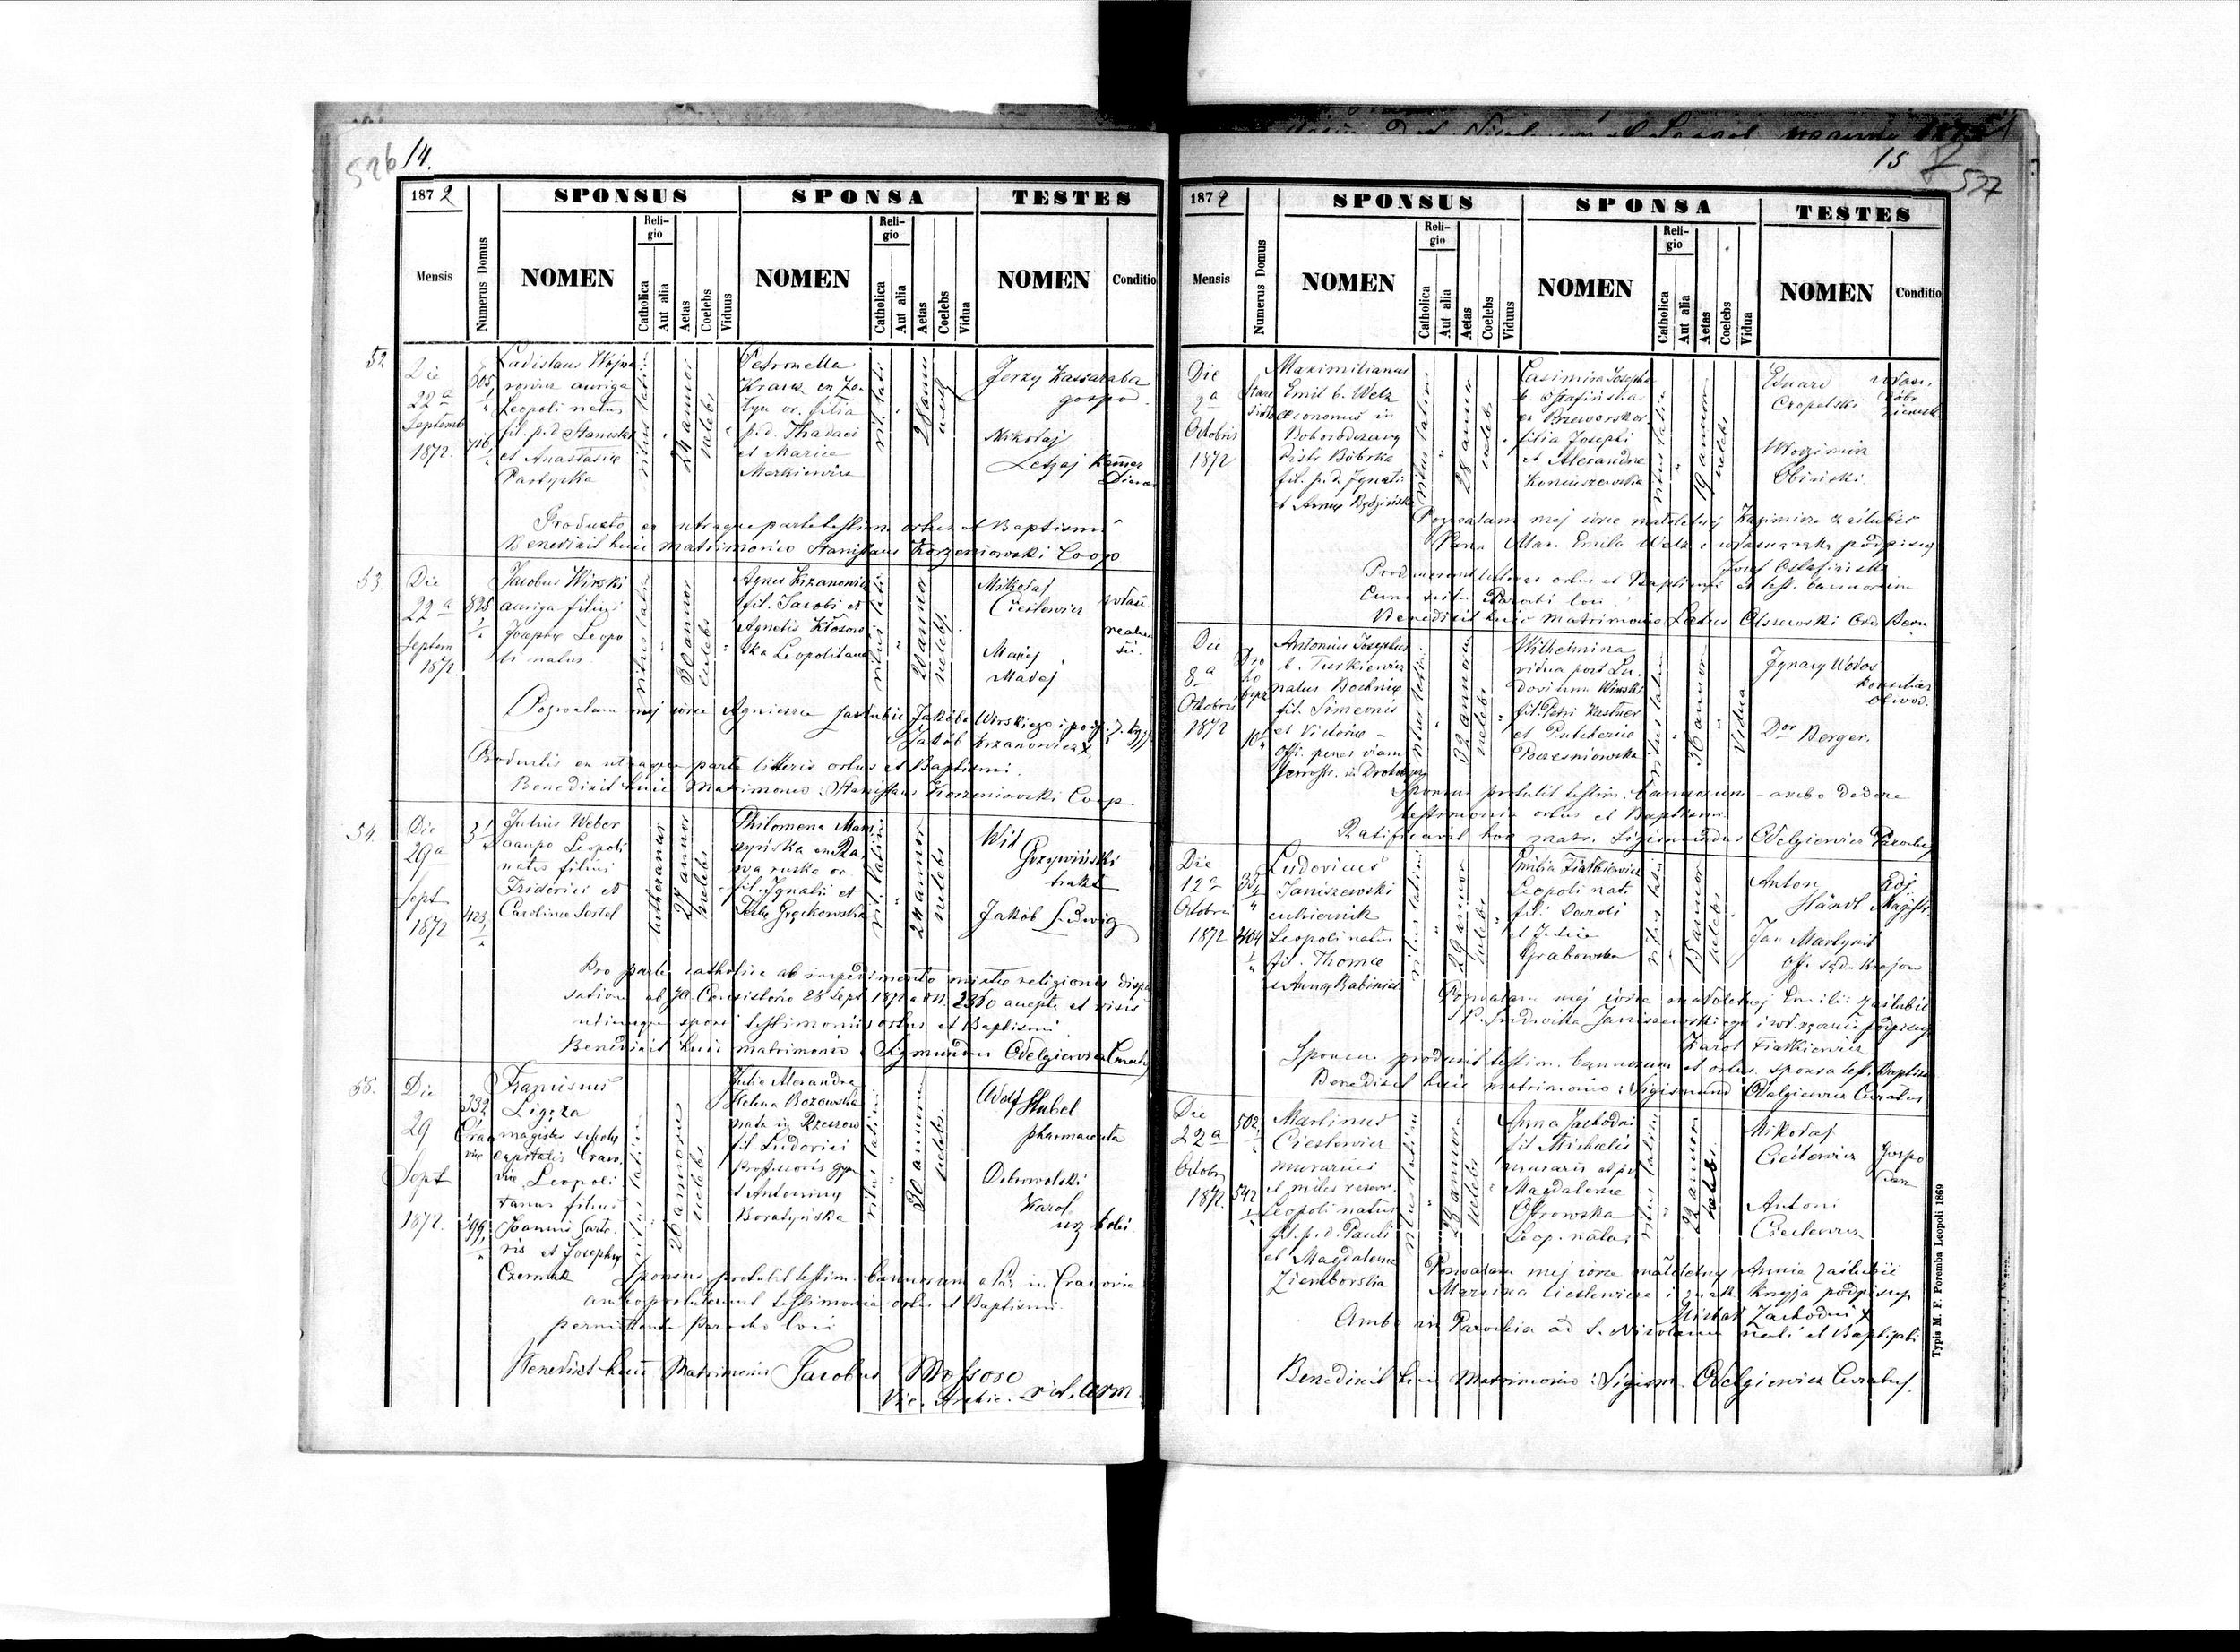 526 14.
1872 SPONSUS SPONSA TESTES
Mensis Numerus Domus NOMEN Religio Catholica Aut alia Aetas Coelebs Viduus NOMEN Religio Catholica Aut alia Aetas Coelebs Vidua NOMEN Conditio
52.
Die
22a
Septemb
1872.
Ladislaus Wojna
rowicz auriga
Leopoli natus
fil. p.d. Stanislai
et Anastasiae
Pastyrka
ritus latini
24 annor
coelebs
Petronella
Kraus ex
or. filia
p.d. Thadaei
et Mariae
Merkiewicz
rit. latii
28 annor
Jerzy Kassaraba
gospod.
Mikołaj
Letzaj
Producto ex utraque parte testium ortus et Baptismi
Benedixit huic matrimonio Stanislaus Korzeniowski Coop
53.
Die
22a
Septem
1872.
825
Jacobus Wirski
auriga filius
Josephae Leopo
li natus
ritus latini
30 annor
coelebs
Agnes Krzanowicz
fil. Jacobi et
Agnetis Kłosow
ska Leopolitana
ritus latini
20 annor
coelebs
Mikołaj
Cieslewicz
Maciej
Madej
Pozwalam mej córce Agnieszce zaślubić Jakóba Wirskiego i
Jakób Krzanowicz X
Productis ex utraque parte litteris ortus et Baptismi.
Benedixit huic Matrimonio: Stanislaus Korzeniowski Coop
54.
Die
29a
Sept
1872
31
423
Julius Weber
Leopoli
natus filius
Friderici et
Carolinae Sertel
lutheranus
27 annor
coelebs
Philomena Mar
zyńska ex Ra
wa ruska or.
fil. Ignatii et
Teklae Gręzkowska
rit. latini
24 annor
coelebs
Wit
Grzywiński
trakt
Jakób Ludwig
Pro parte catholica ab impedimento mixtae religionis dispen
satione ab Consistorio 28 Sept. 1872 a N. 2360 accepta et visis
utriusque sponsi testimoniis ortus et Baptismi
Benedixit huic matrimonio: Sigmundus Odelgiewicz Curatus
55.
Die
29
Sept
1872.
332
Craco
viae
399
Franciscus
Ligęza
magister scholae
capitalis Craco
viae, Leopoli
tanus filius
Joannis Sarto
ris et Josephae
Czermak
ritus latini
26 annorum
coelebs
Julia Alexandra
Helena Bozowska
nata in Rzeszow
fil Ludovici
Professoris Gym
et Antoninae
Boratyńska
ritus latini
30 annorum
coelebs.
Adolf Stubel
pharmaceuta
Dobrowolski
Karol
urz kolei
Sponsus protulit testim. bannorum a Par. in Cracovia
ambo protulerunt testimonia ortus et Baptismi.
permittente Parocho loci
Benedixit huic Matrimonio Jacobus Mossoro
Vic. Archic. rit. arm
15 527
1872 SPONSUS SPONSA TESTES
Mensis Numerus Domus NOMEN Religio Catholica Aut alia Aetas Coelebs Viduus NOMEN Religio Catholica Aut alia Aetas Coelebs Vidua NOMEN Conditio
Die
Octobris
1872
Stare
Siolo
Maximilianus
Emil b. Welz
oeconomus in
Bohorodczany
Piotr Bóbrka
fil. p.d. Ignatii
et Annae
ritus latini
28 annor
coelebs
Casimira Josepha
b. Ostafińska
ex Przeworsk or.
filia Josephi
et Alexandrae
Koniuszewska
ritus latini
19 annor
coelebs
Eduard
Czopelski
właśc.
dóbr
ziemsk
Włozimirz
Obiński
Pozwalam mej córce małoletniej Kazimirze zaślubić
Pana Max. Emila Welz i własną ręką podpisuję
Józef Ostafiński
Produxerunt litteras ortus et Baptismi et test. bannorum
cum Parochi loci.
Benedixit huic matrimonio Laetus Olszewski Ord. Bern
Die
8a
Octobris
1872
Dro
ho
bycz
Antonius Josephus
b. Turkiewicz
natus Bochniae
fil. Simeonis
et Victoriae
off. penes viam
ferrostr. in Drohobycz
ritus latini
32 annor
coelebs
Wilhelmina
vidua post Lu
dovicum Wirski
fil. Petri Kastner
et Pulcheriae
Brzesniowska
ritus latini
36 annor
Vidua
Ignacy Wodos
konsiliar
obwod.
Dor Berger.
Sponsus protulit testim. bannorum - ambo dedere
testimonia ortus et Baptismi.
Ratificavit hoc matr. Sigismundus Odelgiewicz Parochus
Die
12a
Octobris
1872
404
Ludovicus
Janiszewski
cukiernik
Leopoli natus
fil. Thomae
et Annae Babinicz
ritus latini
29 annor
coelebs
Emilia Fiałkiewicz
Leopoli nat.
fil. Caroli
et Juliae
Grabowska
ritus latini
15 annor
coelebs
Anton
Händl
Adj.
Magistr.
Jan Martynit
off. sądu krajow
Pozwalam mej córce małoletniej Emilii zaślubić
P. Ludwika Janiszewskiego i wł. ręcznie podpisuję
Karol Fiałkiewicz
Sponsus produxit testim. bannorum et ortus. sponsa test. Baptismi
Benedixit huic matrimonio: Sigismund Odelgiewicz Curatus
Die
22a
Octobr
1872.
502
542
Martinus
Cieslewicz
murarius
et miles reserv.
Leopoli natus
fil. p.d. Pauli
et Magdalenae
Ziemborska
ritus latini
25 annor
coelebs
Anna Zachodni
fil Michaelis
muraris et
Magdalenae
Ostrowska
Leop. nata
ritus latini
22 annor
coelebs.
Mikołaj
Cieslewicz
gospo
dar
Antoni
Cieslewicz
Pozwalam mej córce małoletniej Annie zaślubić
Marcina Cieslewicza i znak krzyża podpisuję
Michał Zachodni X
Ambo in Parochia ad S. Nicolaum nati et Baptizati
Benedixit huic Matrimonio: Sigism. Odelgiewicz Curatus.
Typis M. F. Poremba Leopoli 1869